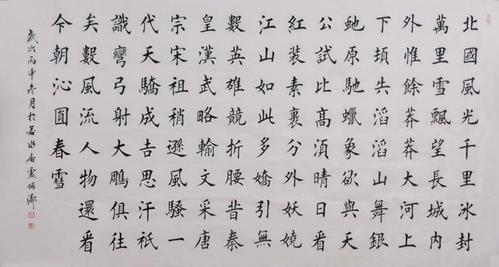 北國風光千里冰封
萬里雪飄望長城內
外惟餘莽莽大河上
下頓失滔滔山舞銀
虵原馳蠟象欲與天
公試比高湏晴日看
紅裝素裹分外妖嬈
江山如此多嬌引無
數英雄競折腰昔秦
皇漢武略輸文采唐
宗宋祖稍遜風騷一
代天驕成吉思汗祇
識彎弓射大鵰俱往
矣數風流人物還看
今朝沁園春雪
歲次丙申冬月於